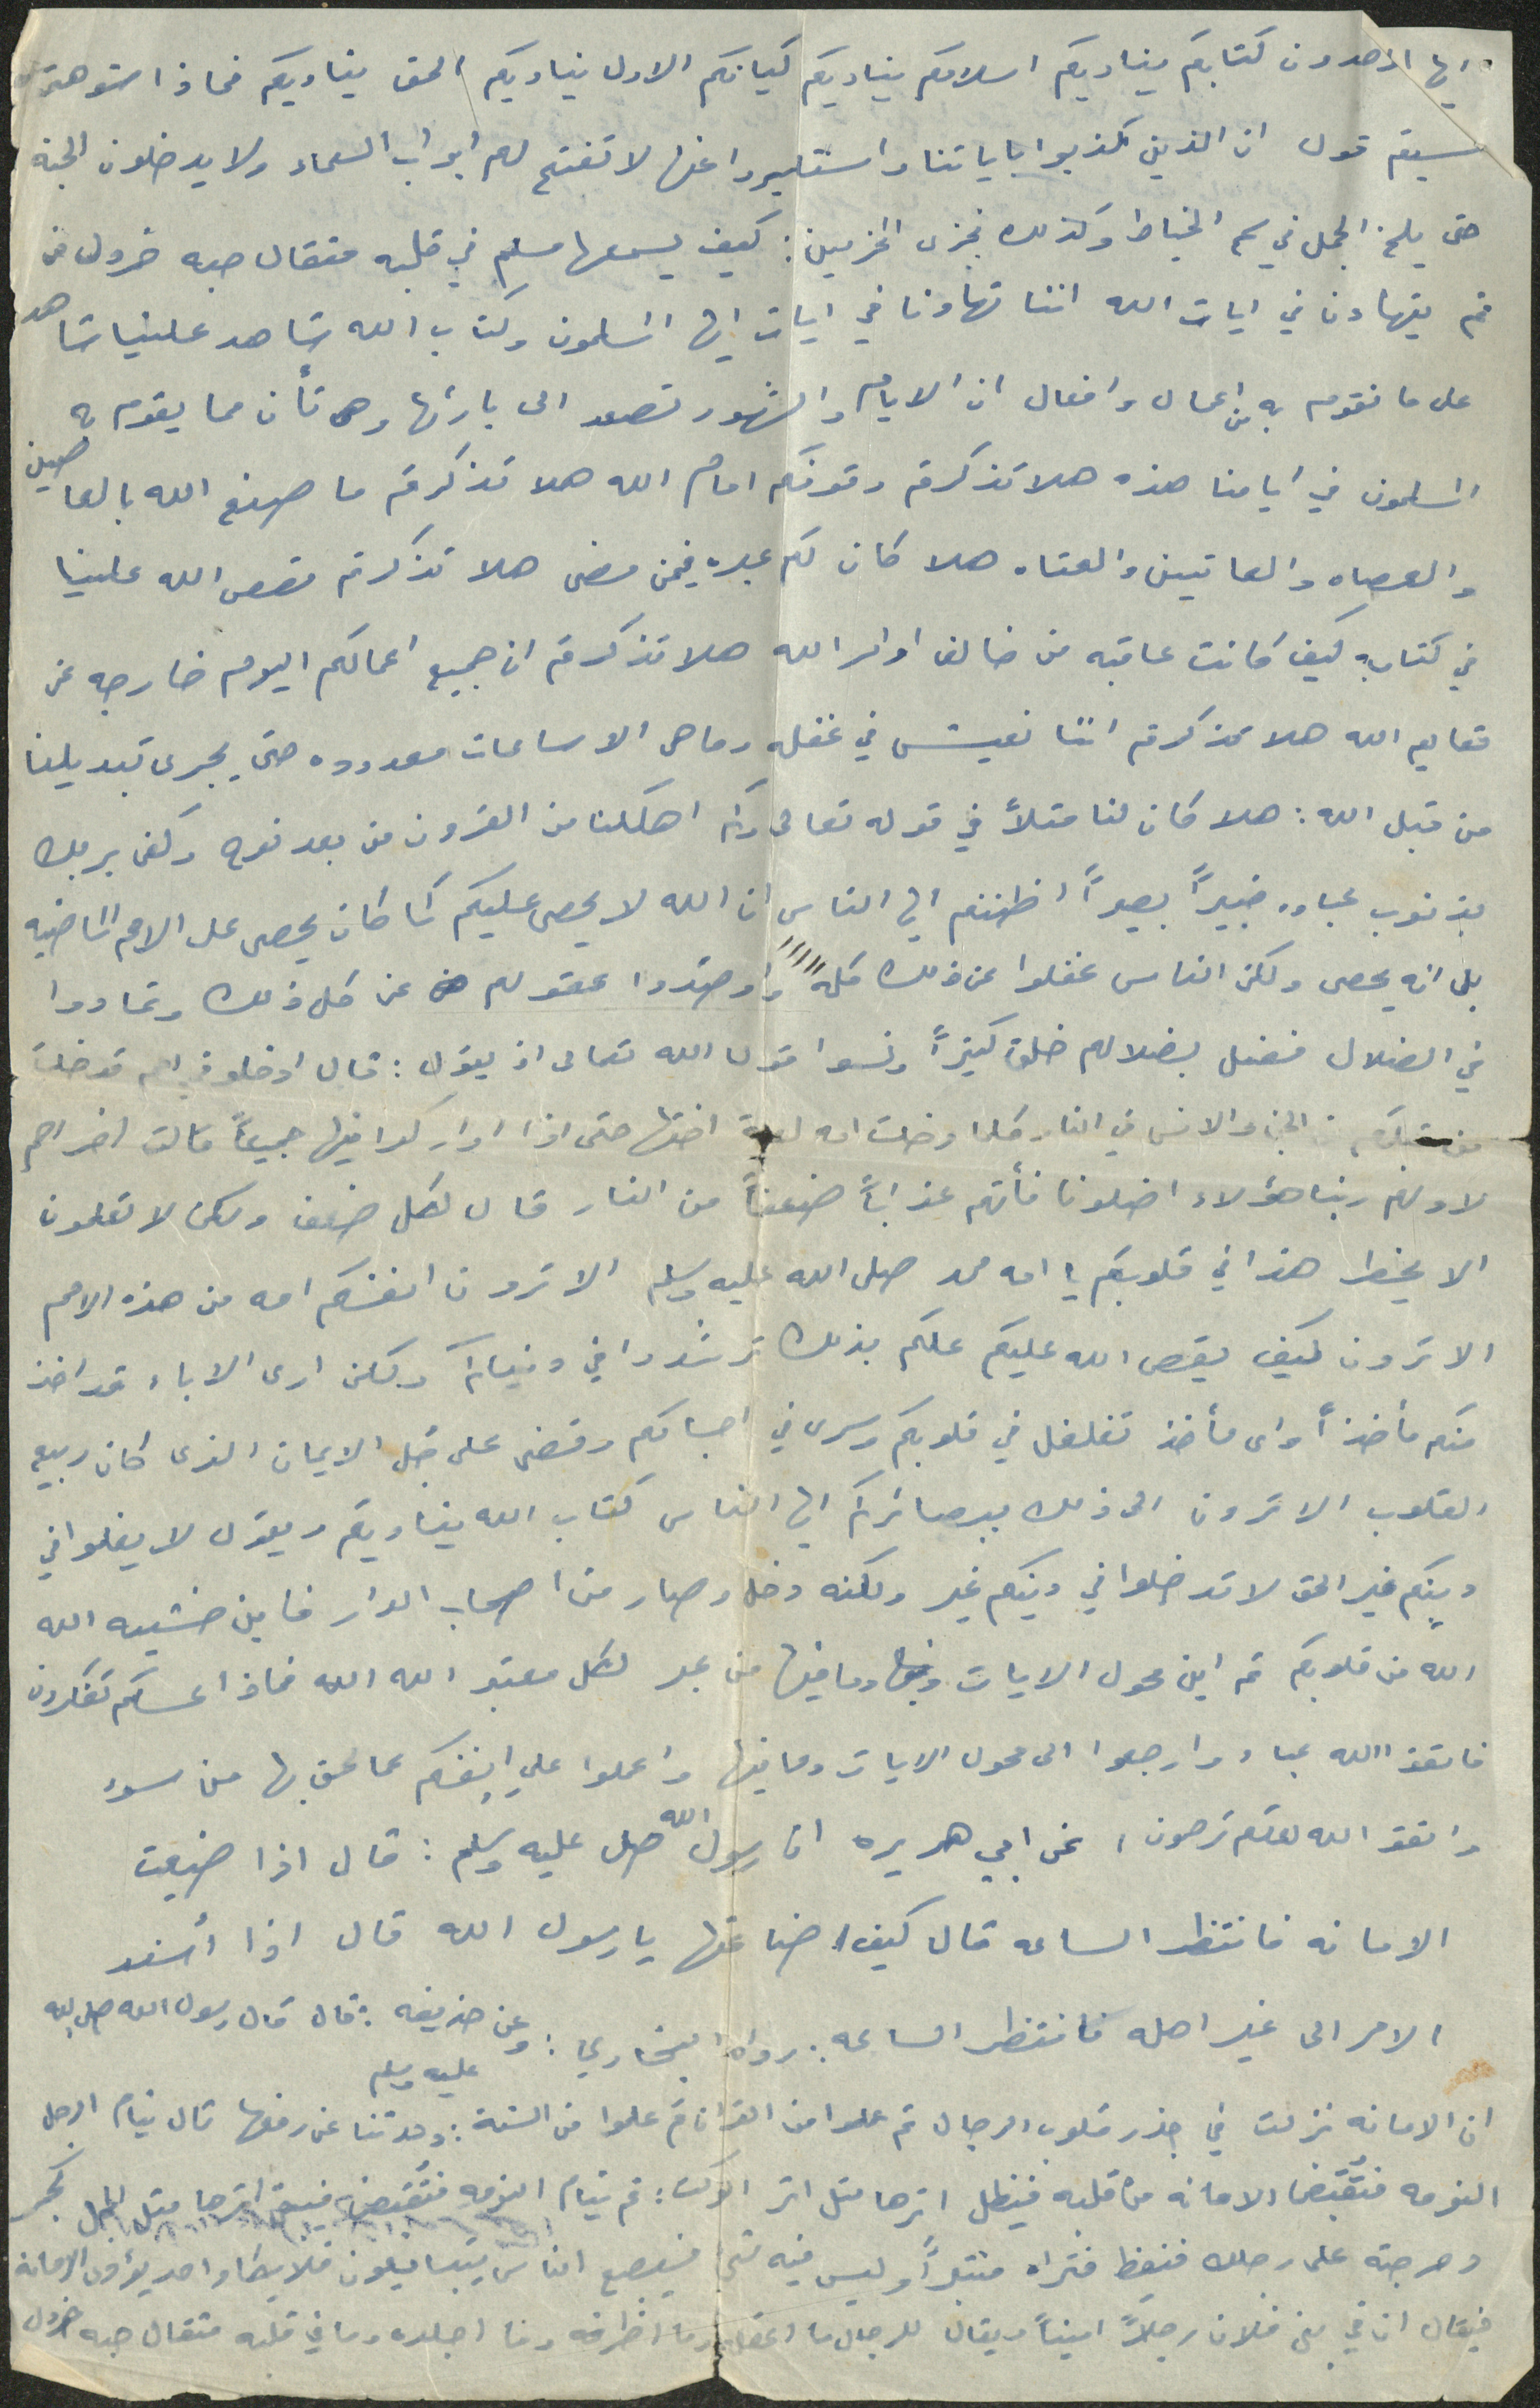 ايها الملحدون كتابكم يناديكم اسلامكم يناديكم كيانكم الاول يناديكم الحق يناديكم فماذا
سيتم قول ان الذين كذبوا باياتنا واستكبروا عنها لا تفتح لهم ابواب السماء ولا يدخلون الجنه
حتى يلج الجمل في سم الخياط وكذلك نجزى المجرمين : كيف يسمعها مسلم في قلبه مثقال حبه خردل من
ثم يتهاون في ايات الله اننا تهاونا في ايات ايها المسلمون وكتاب الله شاهد علينا شاهد
على ما نقوم به من اعمال وافعال ان الايام والشهور تصعد الى بارئها وهى تأن مما يقوم به
المسلمون في ايامنا هذه هلا تذكرتم وقوفكم امام الله هلا تذكرتم ما صنع الله بالعاصين
والعصاه والعاتيين والعتاه هلا كان لكم عبره فيمن مضى هلا تذكرتم قصص الله علينا
في كتابه كيف كانت عاقبه من خالف اوامر الله هلا تذكرتم ان جميع اعمالكم اليوم خارجه عن
تعاليم الله هلا تذكرتم اننا نعيش في غفله وما هى الا ساعات معدوده حتى يجرى تبديلنا
من قبل الله : هلا كان لنا مثلاً في قوله تعالى وكم اهلكنا من القرون من بعد نوح وكفى بربك
بذنوب عباده خبيراً بصيراً اظننتم ايها الناس ان الله لا يحصى عليكم كما كان يحصى على الامم الماضيه
بلى انه يحصى ولكن الناس غفلوا عن ذلك كله واوصدوا عقولهم عن كل ذلك وتمادوا
في الضلال فضل بضلالهم خلق كثيراً ونسوا قول الله تعالى اذ يقول : قال ادخلوا في امم قد خلت
من قبلكم من الجن والانس في النار كلما دخلت امه لعنة اختها حتى اذا اداركوا فيها جميعاً قالت اخراهم
لاولهم ربنا هؤلاء اضلونا فأتهم عذاباً ضعفاً من النار قال لكل ضعف ولكن لا تعلمون
الا يخطر هذا في قلوبكم يا امه محمد صلى الله عليه وسلم الا ترون انفسكم امه من هذه الامم
الا ترون كيف يقص الله عليكم علكم بذلك ترشدوا في دنياكم ولكن ارى الاباء قد اخذ
منكم مأخذاً واى مأخذ تغلغل في قلوبكم وسرى في اجسامكم وقضى على جل الايمان الذى كان ربيع
القلوب الا ترون الى ذلك ببصائركم ايها الناس كتاب الله يناديكم ويقول لا يغلوا في
دينكم غير الحق لا تدخلوا في دينكم غير ولكنه دخل وصار من اصحاب الدار فاين خشيه الله
الله من قلوبكم ثم اين محول الايات وما فيها من عبر لكل معتبر الله الله فماذا عساكم تفكرون
فاتقوا الله عباد وارجعوا الى محول الايات وما فيها واعملوا على انفسكم عما لحق بها من سوء
واتقوا الله لعلكم ترحمون ، عن ابي هريره ان رسول الله صلى عليه وسلم : قال اذا ضيعت
الامانه فانتظر الساعه قال كيف اضاعتها يا رسول الله قال اذا أسند
الامر الى غير اهله فانتظر الساعه : رواه البخاري : وعن حذيفه : قال قال رسول الله صلى الله عليه وسلم
ان الامانه نزلت في جذر قلوب الرجال ثم علموا من القران ثم علموا من السنة : وحدثنا عن رفعها قال ينام الرجل
النومه فتُقبَض الامانه من قلبه فيظل اثرها مثل اثر الوكت : ثم ينام النومه فتُقبض فيبقى اثرها مثل المجل كجمر
دحرجته على رجلك فنفط فتراه منتبراً وليس فيه شئ فيصبح الناس يتبايعون فلا يكاد احد يؤدى الامانه
فيقال ان في بنى فلان رجلاً اميناً ويقال للرجل ما اعقله وما اظرفه وما اجلده وما في قلبه مثقال حبه خردل